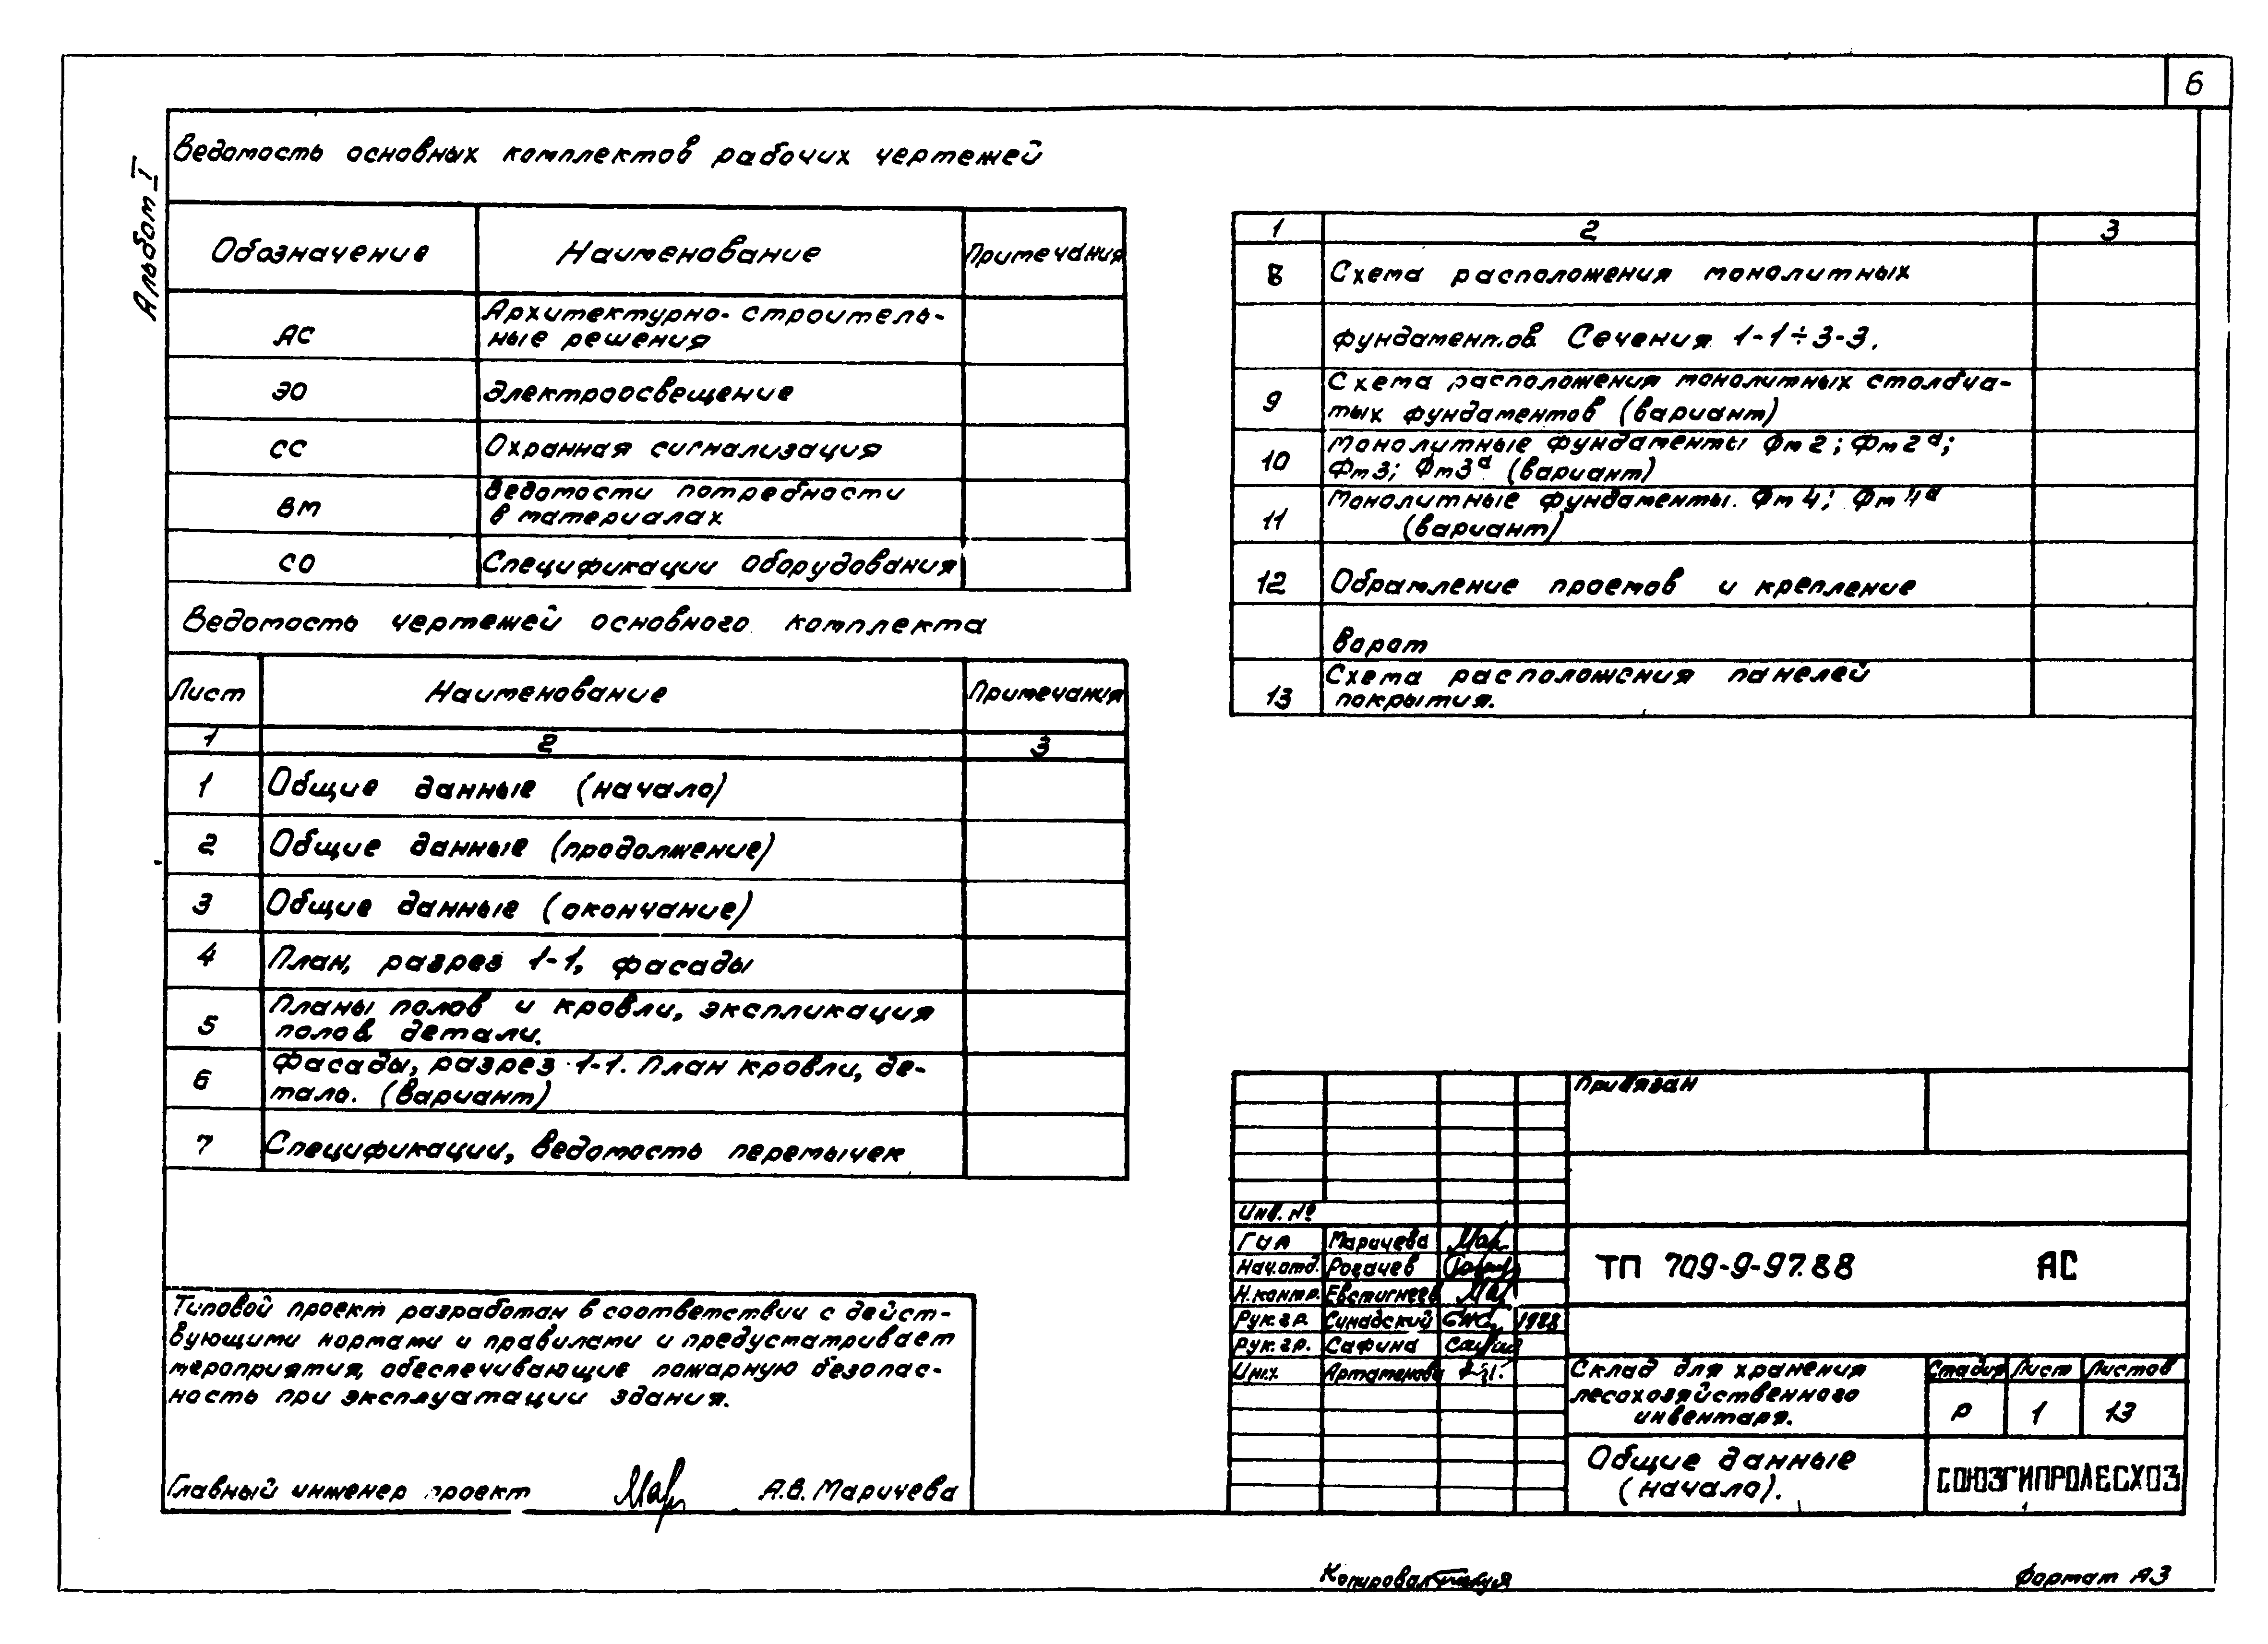 6
Альбом I
Ведомость основных комплектов рабочих чертежей
Обозначение Наименование Примечания
АС Архитектурно-строитель-
ные решения
ЭО Электроосвещение
СС Охранная сигнализация
ВМ Ведомости потребности
в материалах
СО Спецификации оборудования
Ведомость чертежей основного комплекта
Лист Наименование Примечания
1 2 3
1 Общие данные (начало)
2 Общие данные (продолжение)
3 Общие данные (окончание)
4 План, разрез 1-1, фасады
5 Планы полов и кровли, экспликация
полов детали.
6 Фасады, разрез 1-1. План кровли, де-
таль. (вариант)
7 Спецификации, ведомость перемычек
Типовой проект разработан в соответствии с дейст-
вующими нормами и правилами и предусматривает
мероприятия, обеспечивающие пожарную безопас-
ность при эксплуатации здания.
Главный инженер проект А.В. Маричева
1 2 3
8 Схема расположения монолитных
фундаментов Сечения 1-1÷3-3.
9 Схема расположения монолитных столбча-
тых фундаментов (вариант)
10 Монолитные фундаменты Фм2; Фм2а;
Фм3; Фм3а (вариант)
11 Монолитные фундаменты. Фм4; Фм4а
(вариант)
12 Обрамление проемов и крепление
ворот
13 Схема расположения панелей
покрытия.
Привязан
Инв. №
ГИП Маричева
Нач.отд. Рогачев
Н.контр. Евстигнеев
Рук.гр. Синадский 1988
Рук.гр. Сафина
Инж. Артаменова
ТП 709-9-97.88 АС
Склад для хранения
лесохозяйственного
инвентаря.
Стадия Лист Листов
Р 1 13
Общие данные
(начало).
СОЮЗГИПРОЛЕСХОЗ
Копировал
Формат А3